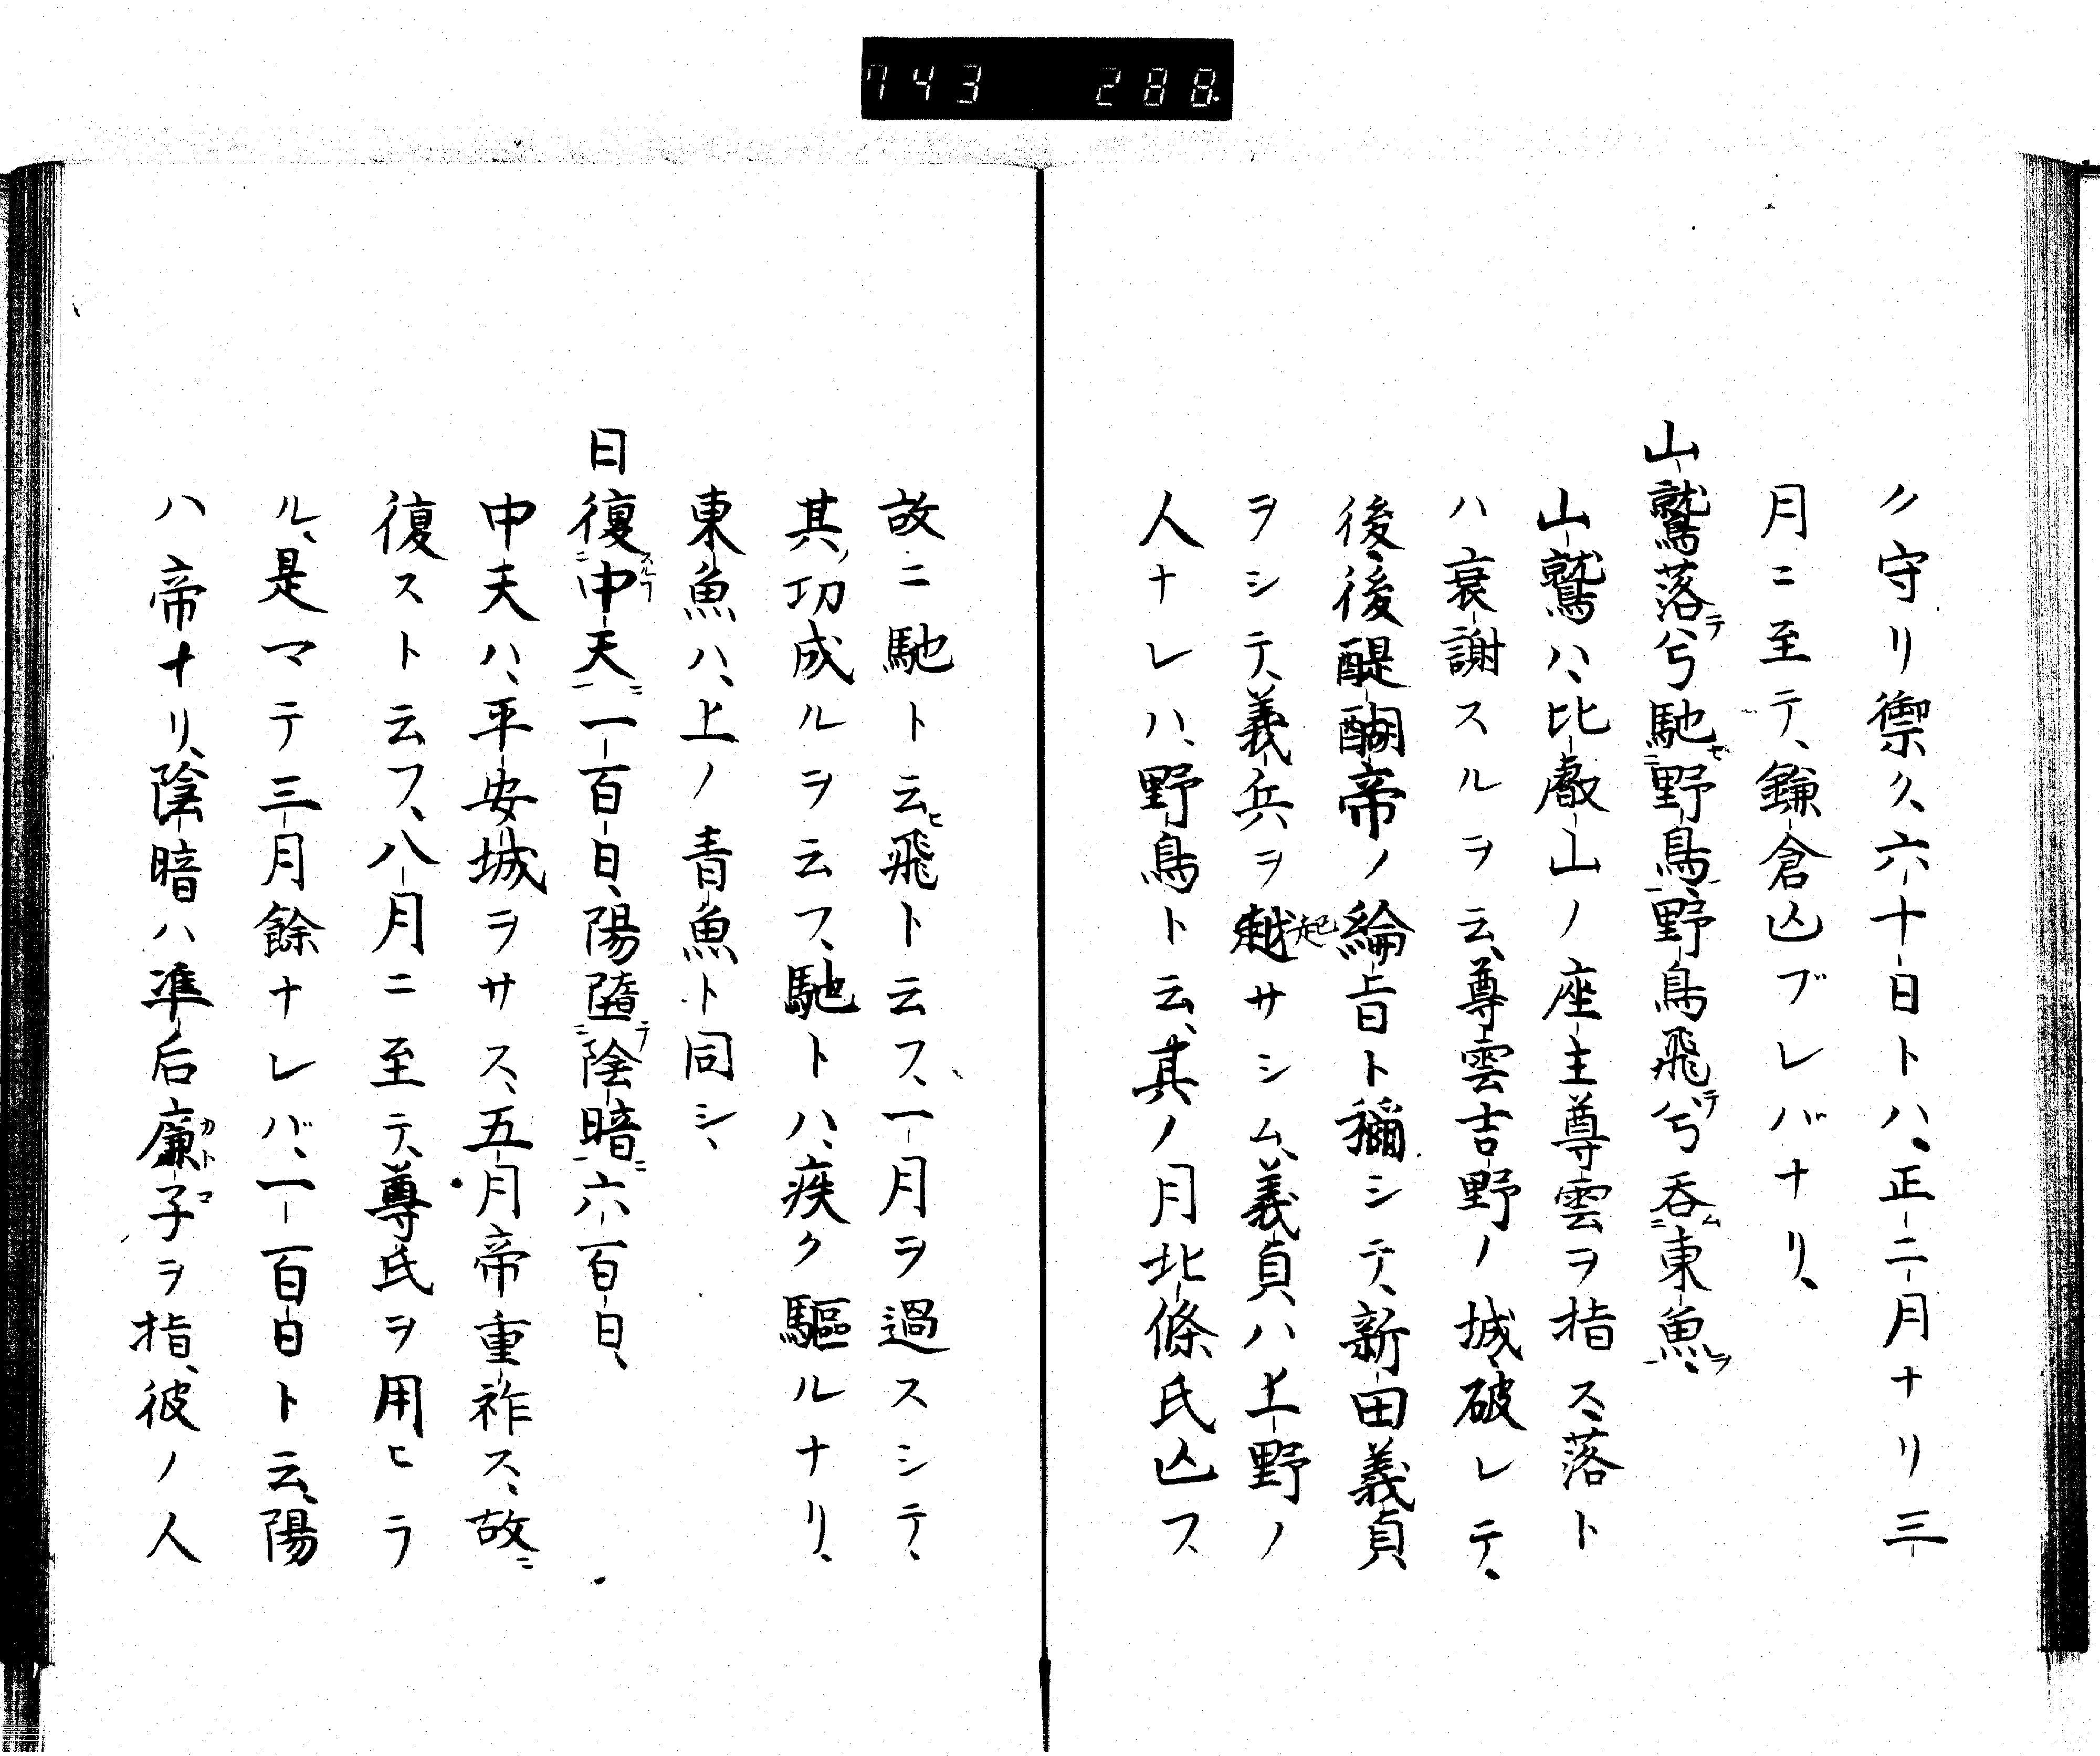 743 288.
ク守リ禦ク、六十日トハ、正二月ナリ三
月ニ至テ、鎌倉亡ブレバナリ、
山鷲落テ兮馳セ野鳥、野鳥飛テ兮呑ム東魚ヲ、
山鷲ハ、比叡山ノ座主尊雲ヲ指ス、落ト
ハ衰謝スルヲ云、尊雲吉野ノ城、破レテ、
後、後醍醐帝ノ綸旨ト稱シテ、新田義貞
ヲシテ、義兵ヲ越起サシム、義貞ハ上野ノ
人ナレハ、野鳥ト云、其ノ月北條氏亡フ
故ニ馳ト云ヒ飛ト云フ、一月ヲ過スシテ、
其ノ功成ルヲ云フ、馳トハ、疾ク驅ルナリ、
東魚ハ、上ノ青魚ト同シ、
日復スルヿ中天ニ一百日、陽墮テ陰暗ニ六百日、
中天ハ、平安城ヲサス、五月帝重祚ス、故ニ
復スト云フ、八月ニ至テ、尊氏ヲ用ヒラ
ル、是マテ三月餘ナレバ、一百日ト云、陽
ハ帝ナリ、陰暗ハ準后廉子カトコヲ指、彼ノ人